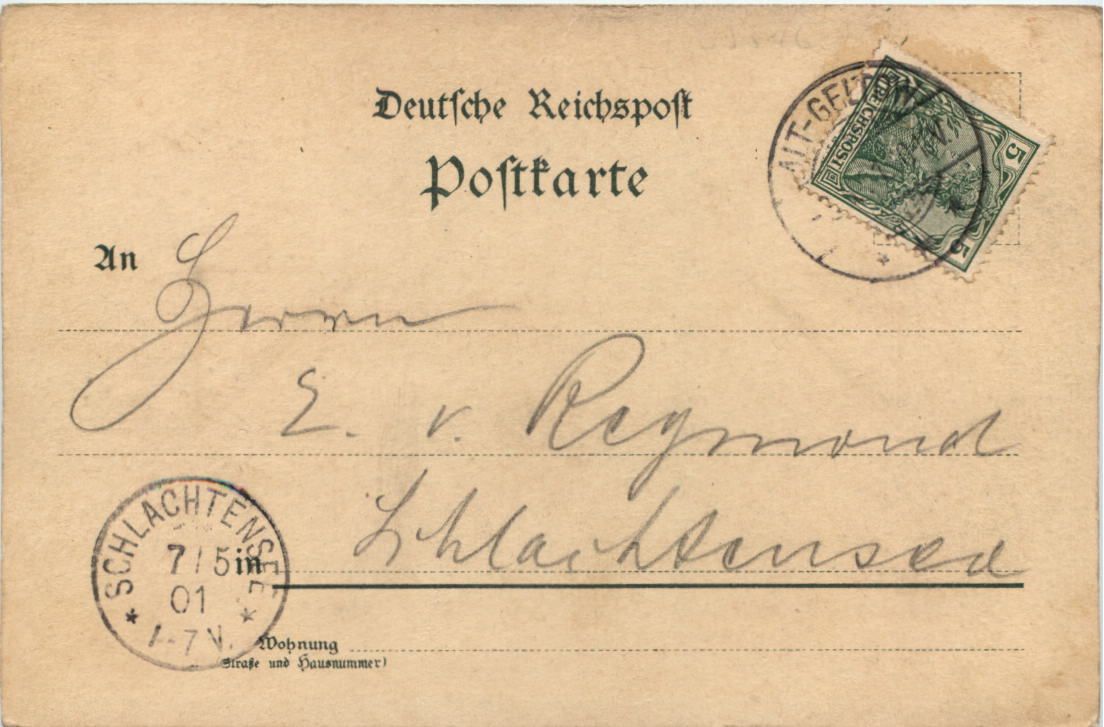 Deutsche Reichspost
Postkarte
ALT-GELTOW
REICHSPOST
5
5
An Herrn
E. v. Reymond
in Schlachtensee
SCHLACHTENSEE
7/5
01
-7V.
Wohnung
(Straße und Hausnummer)